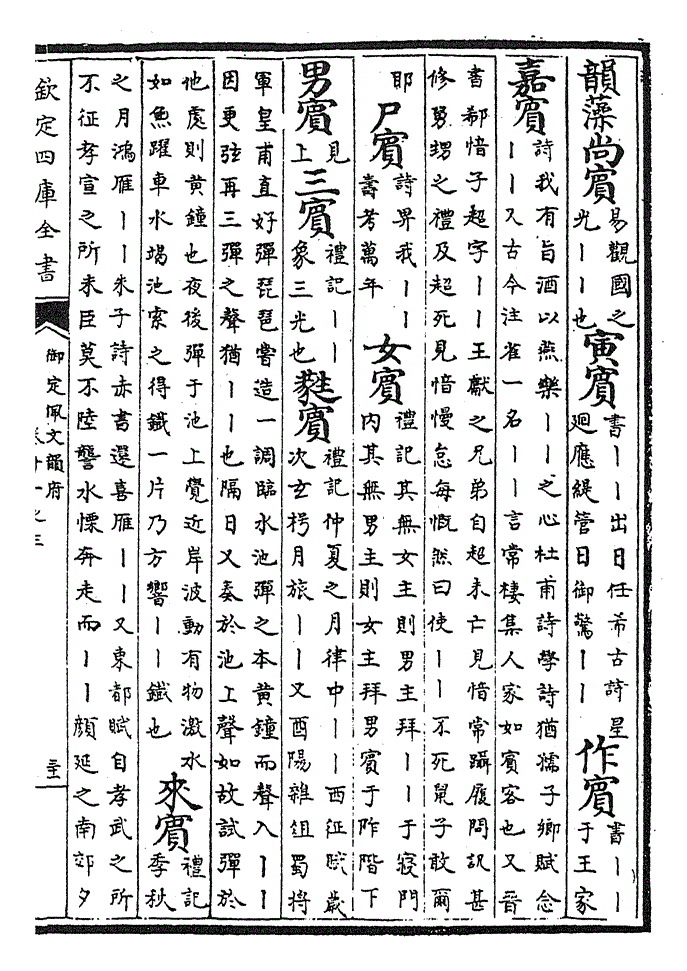 韻藻尚賓 易觀國之
光丨丨也 寅賓 書丨丨出日任希古詩星
廻應緹管日御驚丨丨 作賓 書丨丨
于王家
嘉賓 詩我有旨酒以燕樂丨丨之心杜甫詩學詩猶孺子鄉賦念
丨丨又古今注雀一名丨丨言常棲集人家如賓客也又晉
書郗愔子超字丨丨王獻之兄弟自超未亡見愔常躡履問訊甚
修舅甥之禮及超死見愔慢怠每慨然曰使丨丨不死鼠子敢爾
耶 尸賓 詩畀我丨丨
壽考萬年 女賓 禮記其無女主則男主拜丨丨于寢門
内其無男主則女主拜男賓于阼階下
男賓 見
上 三賓 禮記丨丨
象三光也 蕤賓 禮記仲夏之月律中丨丨西征賦歲
次玄枵月旅丨丨又酉陽雜俎蜀將
軍皇甫直好彈琵琶嘗造一調臨水池彈之本黄鐘而聲入丨丨
因更弦再三彈之聲猶丨丨也隔日又奏於池上聲如故試彈於
他處則黄鐘也夜後彈于池上覺近岸波動有物激水
如魚躍車水竭池索之得鐵一片乃方響丨丨鐵也 來賓 禮記
季秋
之月鴻雁丨丨朱子詩赤書還喜雁丨丨又東都賦自孝武之所
不征孝宣之所未臣莫不陸讋水慄奔走而丨丨顔延之南郊夕
欽定四庫全書
御定佩文韻府
卷十一之三